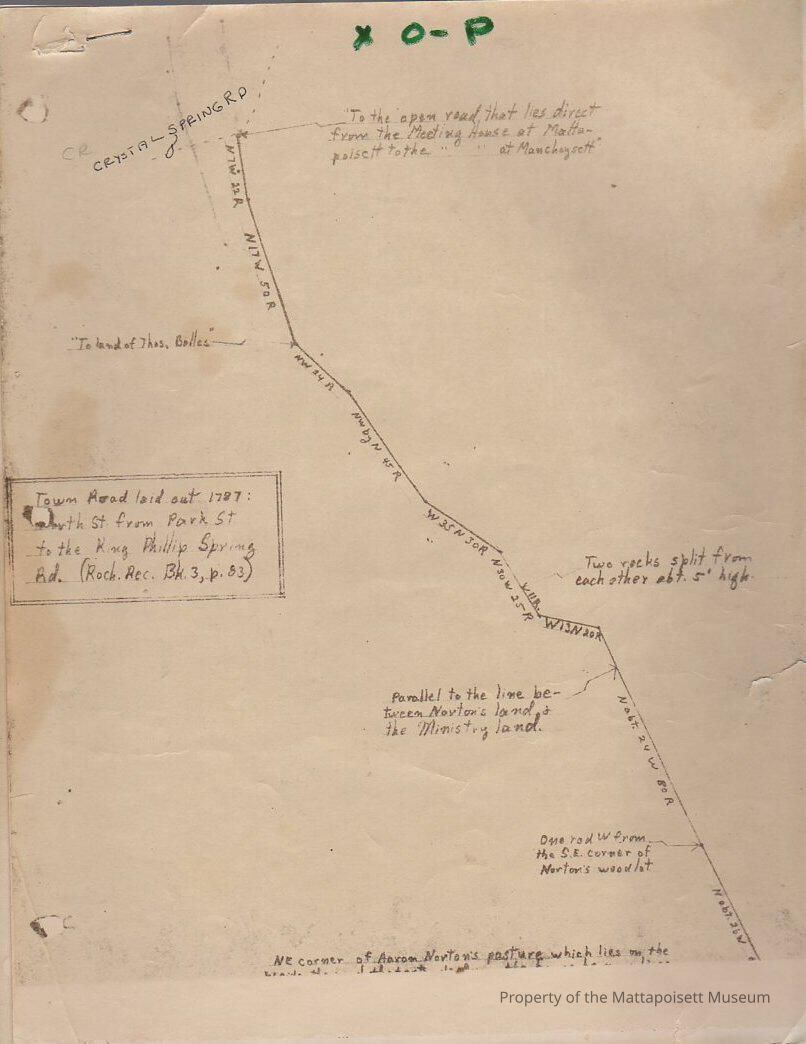 X O-P
CR
CRYSTAL SPRING RD
"To the open road, that lies direct
from the Meeting House at Matta-
poisett to the " " at Manchoysett"
N7W 22R
N17W 50R
"To land of Thos. Bolles"
NW 24 R
NW by N 45 R
W 35 N 30R
N 30 W 25 R
W 13 N 20R
Town Road laid out 1787:
North St from Park St
to the King Phillip Spring
Rd. (Roch. Rec. Bk. 3, p. 83)
Two rocks split from
each other abt. 5' high.
Parallel to the line be-
tween Norton's land &
the Ministry land.
N abt. 24 W 80 R
One rod W from
the S.E. corner of
Norton's woodlot
N abt. 26 W
NE corner of Aaron Norton's pasture which lies on the
Property of the Mattapoisett Museum